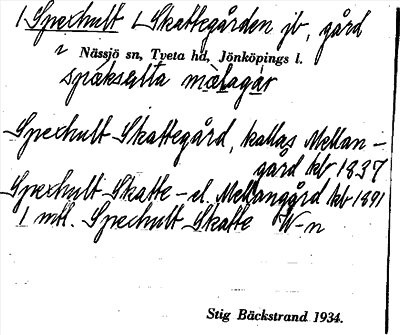 1 Spexhult Skattegården jb, gård
i Nässjö sn, Tveta hd, Jönköpings l.
späksɐlta mɐ̀lagar
Spexhult Skattegård, kallas Mellan-
gård kb 1837
Spexhult Skatte- el. Mellangård kb 1891
1 mtl. Spexhult Skatte W-n
Stig Bäckstrand 1934.